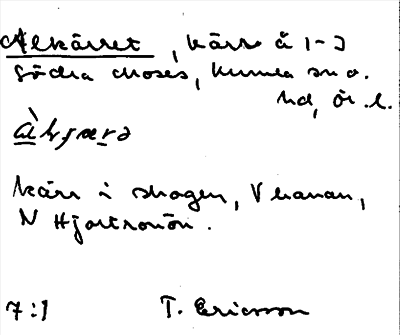 Alkärret, kärr å 1-2
Södra Moses, Kumla sn o.
hd, Ör. l.
kärr i skogen, V kanan,
N Hjortronön.
7:1 T. Ericsson